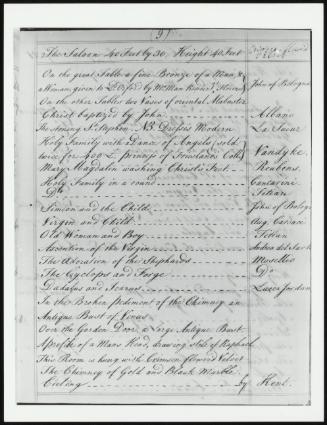 (9)
The Saloon 40 Feet by 30. Height 40 Feet
On the great Table a fine Bronze of a Man, &
a Woman, given to Ld. Orford by Mann John of Bologna
On the other Tables two Vases of oriental Alabaster
Christ baptized by John Albano
The stoning St. Stephen. NB. Drefses Modern La Sueur
Holy Family with a Dance of Angels (sold Vandyke
twice for 1400 £. Princefs of Friesland's Coll.)
Mary Magdalen washing Christ's Feet Reubens.
Holy Family in a round Cantarini
Do. Titian
Simeon and the Child John of Bologn
Virgin and Child Aug. Carracc
Old Woman and Boy Titian
Ascention of the Virgin Andrea del Sart
The Adoration of the Shepherds Morellio
The Cyclops and Forge Gio
Dædalus and Icarus Lucca Jordan
In the Broken Pediment of the Chimney an
Antique Bust of Venus
Over the Garden Door, a large Antique Bust
A profile of a Mans Head, drawing stile of Raphael
This Room is hung with Crimson flower'd Velvet
The Chimney of Gold and Black Marble.
Cieling by Kent.